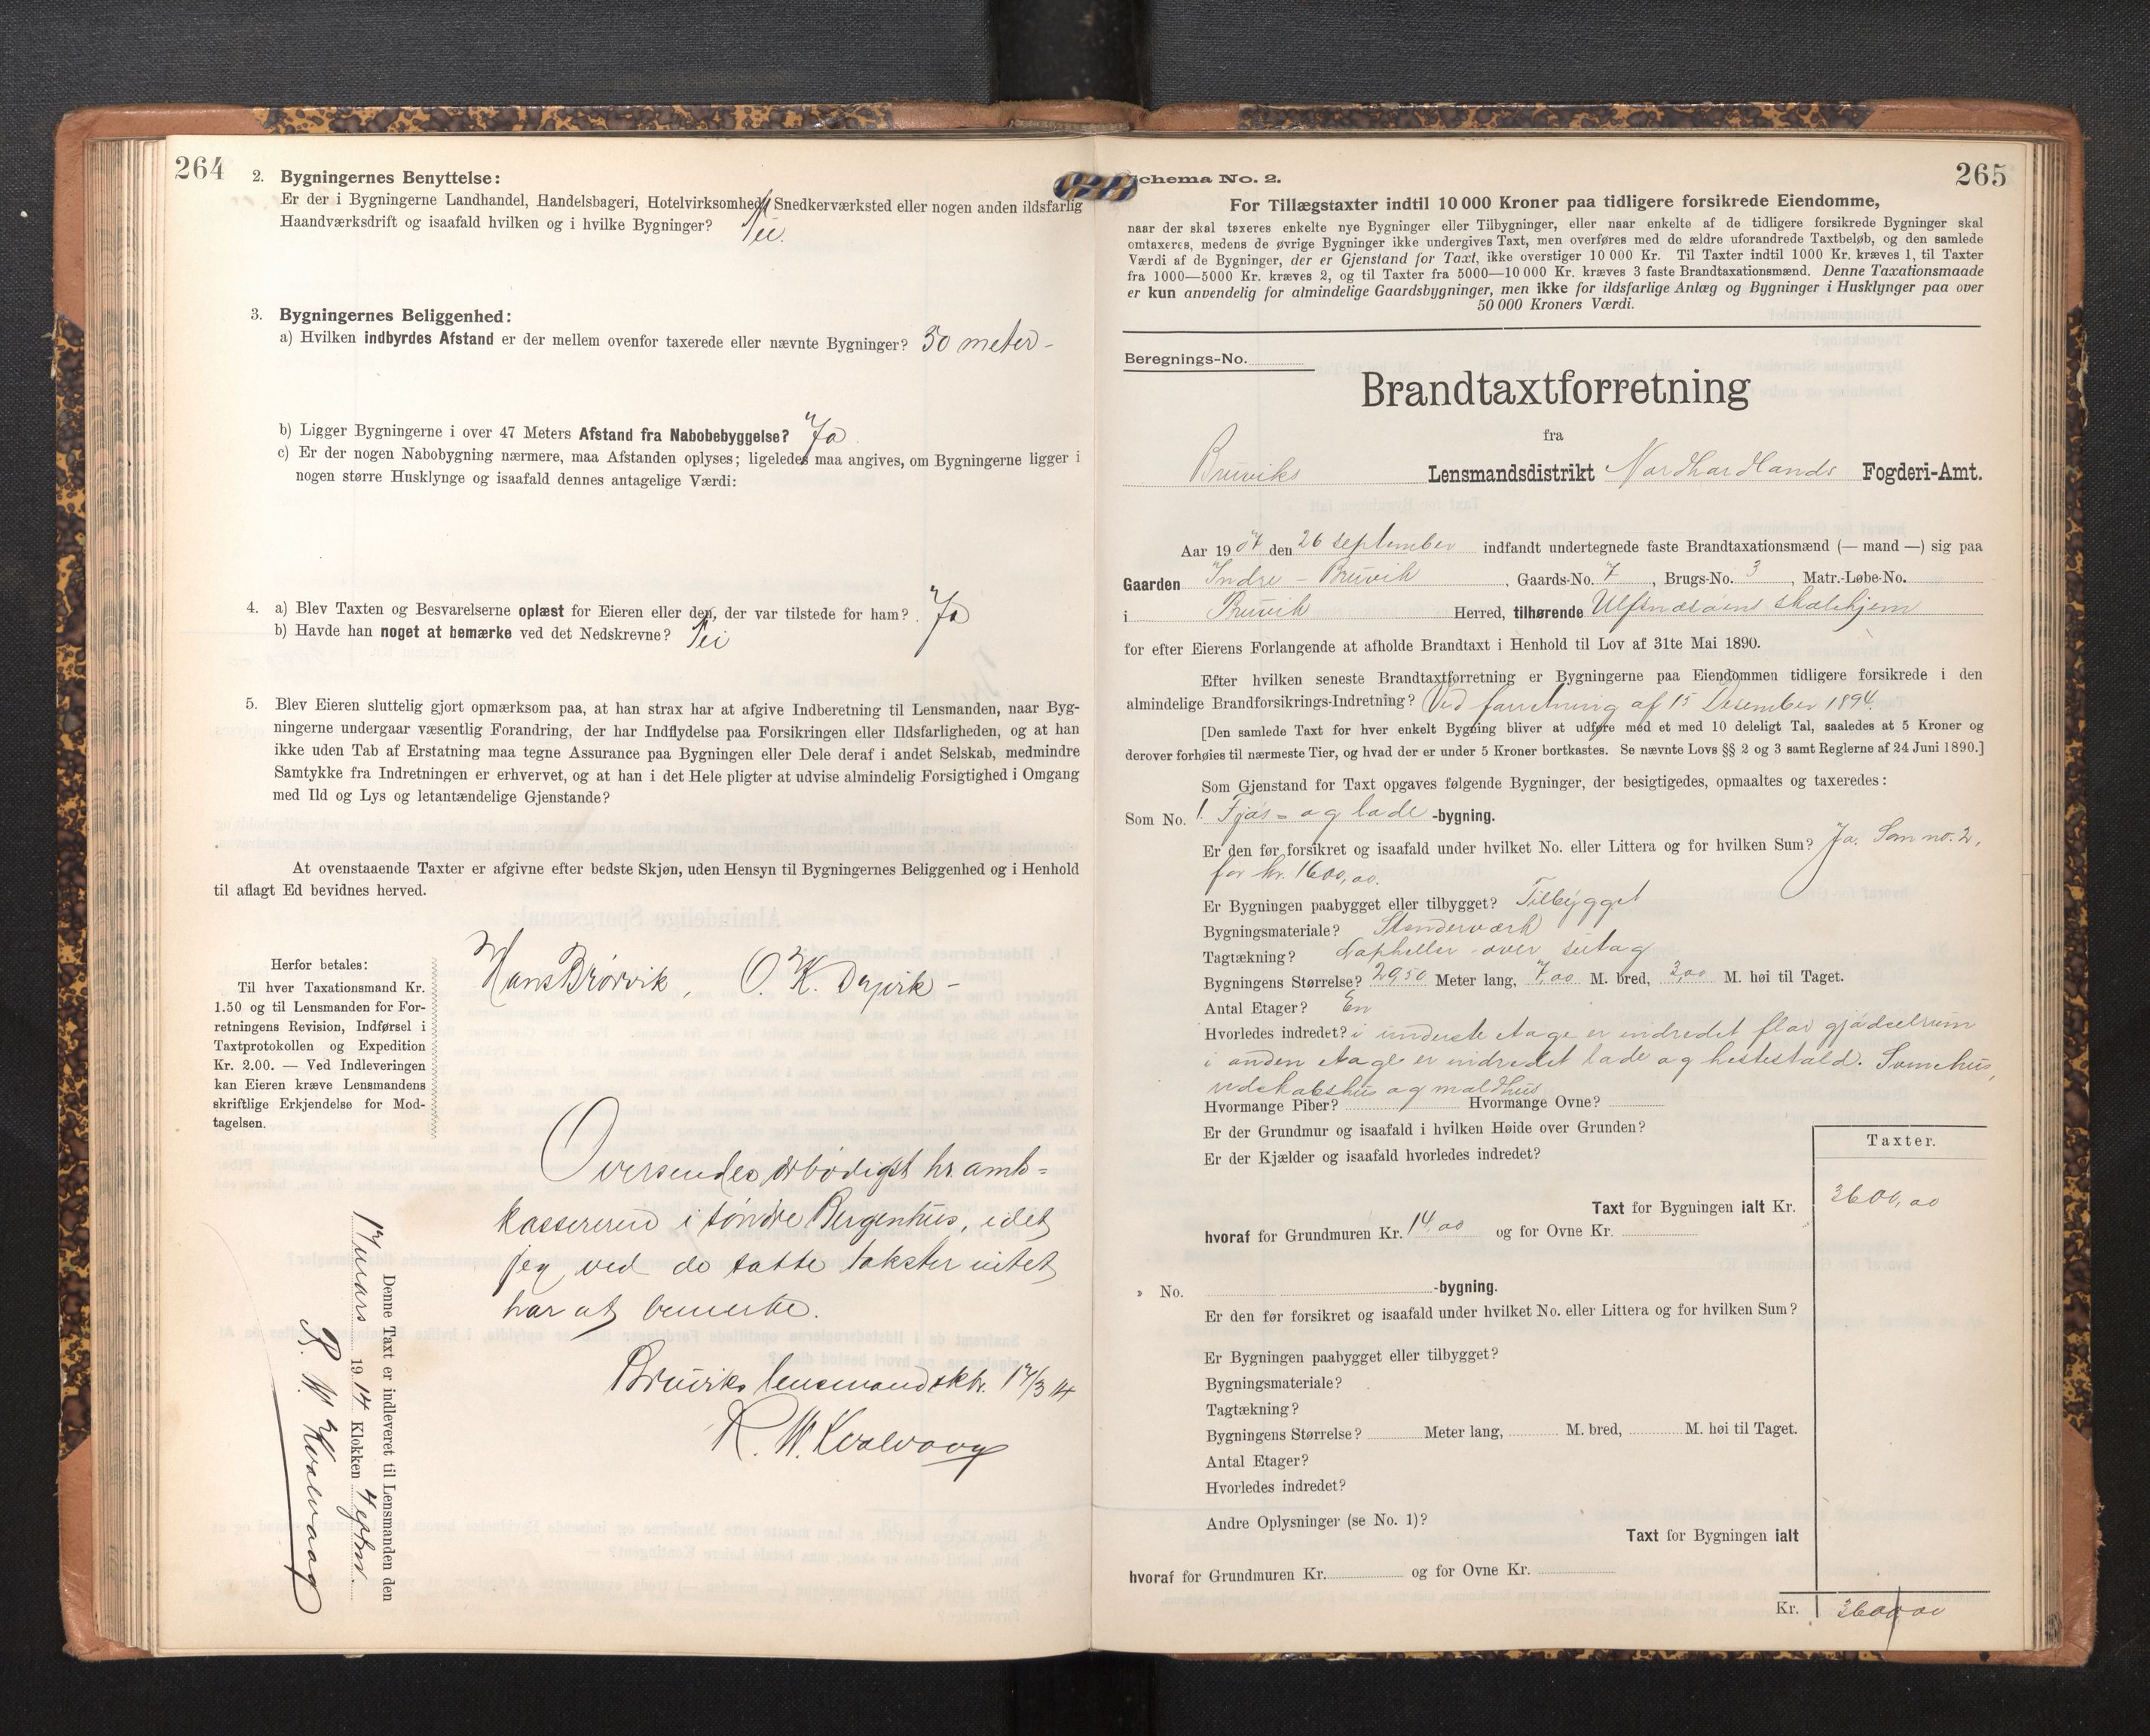 264
2. Bygningernes Benyttelse:
Er der i Bygningerne Landhandel, Handelsbageri, Hotelvirksomhed, Snedkerværksted eller nogen anden ildsfarlig
Haandværksdrift og isaafald hvilken og i hvilke Bygninger? Nei.
3. Bygningernes Beliggenhed:
a) Hvilken indbyrdes Afstand er der mellem ovenfor taxerede eller nævnte Bygninger? 50 meter -
b) Ligger Bygningerne i over 47 Meters Afstand fra Nabobebyggelse? Ja.
c) Er der nogen Nabobygning nærmere, maa Afstanden oplyses; ligeledes maa angives, om Bygningerne ligger i
nogen større Husklynge og isaafald dennes antagelige Værdi:
4. a) Blev Taxten og Besvarelserne oplæst for Eieren eller den, der var tilstede for ham? Ja
b) Havde han noget at bemærke ved det Nedskrevne? Nei
5. Blev Eieren sluttelig gjort opmærksom paa, at han strax har at afgive Indberetning til Lensmanden, naar Byg-
ningerne undergaar væsentlig Forandring, der har Indflydelse paa Forsikringen eller Ildsfarligheden, og at han
ikke uden Tab af Erstatning maa tegne Assurance paa Bygningen eller Dele deraf i andet Selskab, medmindre
Samtykke fra Indretningen er erhvervet, og at han i det Hele pligter at udvise almindelig Forsigtighed i Omgang
med Ild og Lys og letantændelige Gjenstande?
At ovenstaaende Taxter er afgivne efter bedste Skjøn, uden Hensyn til Bygningernes Beliggenhed og i Henhold
til aflagt Ed bevidnes herved.
Hans Brørvik, O. K.
Herfor betales:
Til hver Taxationsmand Kr.
1.50 og til Lensmanden for For-
retningens Revision, Indførsel i
Taxtprotokollen og Expedition
Kr. 2.00. — Ved Indleveringen
kan Eieren kræve Lensmandens
skriftlige Erkjendelse for Mod-
tagelsen.
Oversendes ærbødigst hr. amts=
kassereren i søndre Bergenhus, idet
jeg ved de satte takster intet
har at bemerke.
Bruviks lensmandsktr. 17/3 14
R. W. Kvalvaag
Denne Taxt er indleveret til Lensmanden den
17 mars 1914 Klokken 4 eftm.
R. W. Kvalvaag
Schema No. 2.
265
For Tillægstaxter indtil 10 000 Kroner paa tidligere forsikrede Eiendomme,
naar der skal taxeres enkelte nye Bygninger eller Tilbygninger, eller naar enkelte af de tidligere forsikrede Bygninger skal
omtaxeres, medens de øvrige Bygninger ikke undergives Taxt, men overføres med do ældre uforandrede Taxtbeløb, og den samlede
Værdi af de Bygninger, der er Gjenstand for Taxt, ikke overstiger 10 000 Kr. Til Taxter indtil 1000 Kr. kræves 1, til Taxter
fra 1000—5000 Kr. kræves 2, og til Taxter fra 5000—10 000 Kr. kræves 3 faste Brandtaxationsmænd. Denne Taxationsmaade
er kun anvendelig for almindelige Gaardsbygninger, men ikke for ildsfarlige Anlæg og Bygninger i Husklynger paa over
50 000 Kroners Værdi.
Beregnings-No.
Brandtaxtforretning
fra
Bruviks Lensmandsdistrikt Nordhordlands Fogderi-Amt.
Aar 1907 den 26 september indfandt undertegnede faste Brandtaxationsmænd (— mand —) sig paa
Gaarden Indre - Bruvik, Gaards-No. 7, Brugs-No. 3, Matr.-Løbe-No.
i Bruvik Herred, tilhørende Ulfsnæsøens skolehjem
for efter Eierens Forlangende at afholde Brandtaxt i Henhold til Lov af 31te Mai 1890.
Efter hvilken seneste Brandtaxtforretning er Bygningerne paa Eiendommen tidligere forsikrede i den
almindelige Brandforsikrings-Indretning? Ved forretning af 15 Desember 1894.
[Den samlede Taxt for hver enkelt Bygning bliver at udføre med et med 10 deleligt Tal, saaledes at 5 Kroner og
derover forhøies til nærmeste Tier, og hvad der er under 5 Kroner bortkastes. Se nævnte Lovs §§ 2 og 3 samt Reglerne af 24 Juni 1890.]
Som Gjenstand for Taxt opgaves følgende Bygninger, der besigtigedes, opmaaltes og taxeredes:
Som No. 1. Fjøs- og lade -bygning.
Er den før forsikret og isaafald under hvilket No. eller Littera og for hvilken Sum? Ja. Som no. 2,
for kr. 1600,00.
Er Bygningen paabygget eller tilbygget? Tilbygget
Bygningsmateriale? Stenderværk
Tagtækning? Napheller over sutag
Bygningens Størrelse? 29,50 Meter lang, 7,00 M. bred, 3,00 M. høi til Taget.
Antal Etager? En
Hvorledes indredet? i underste etage er indredet flor gjødselrum
i anden etage er indredet lade og hestestald. Svinehus,
redskabshus og maldhus
Hvormange Piber? Hvormange Ovne?
Er der Grundmur og isaafald i hvilken Høide over Grunden?
Er der Kjælder og isaafald hvorledes indredet?
Taxter.
Taxt for Bygningen ialt Kr. 3600,00
hvoraf for Grundmuren Kr. 14,00 og for Ovne Kr.
» No. -bygning.
Er den før forsikret og isaafald under hvilket No. eller Littera og for hvilken Sum?
Er Bygningen paabygget eller tilbygget?
Bygningsmateriale?
Tagtækning?
Bygningens Størrelse? Meter lang, M. bred, M. høi til Taget.
Antal Etager?
Hvorledes indredet?
Andre Oplysninger (se No. 1)?
Taxt for Bygningen ialt
hvoraf for Grundmuren Kr. og for Ovne Kr.
Kr. 3600,00